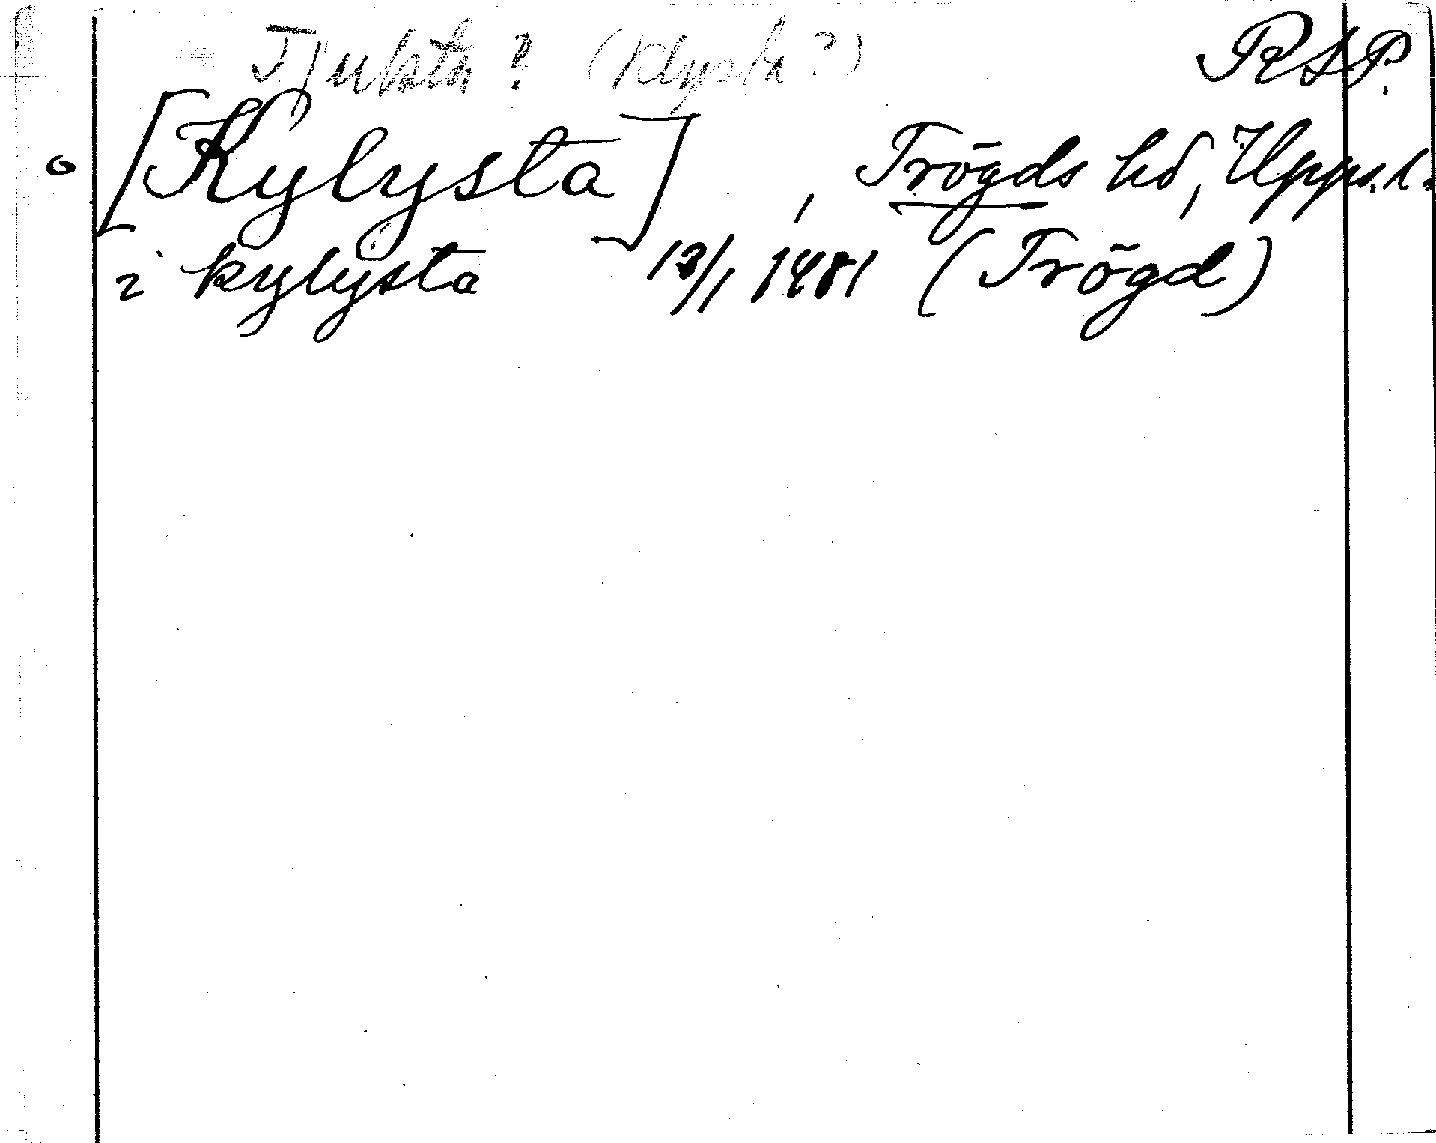 Tjuksta? (Klysta?) RAP.
[Kylysta], Trögds hd, Upps. l.
i kylysta 13/1 1481 (Trögd)